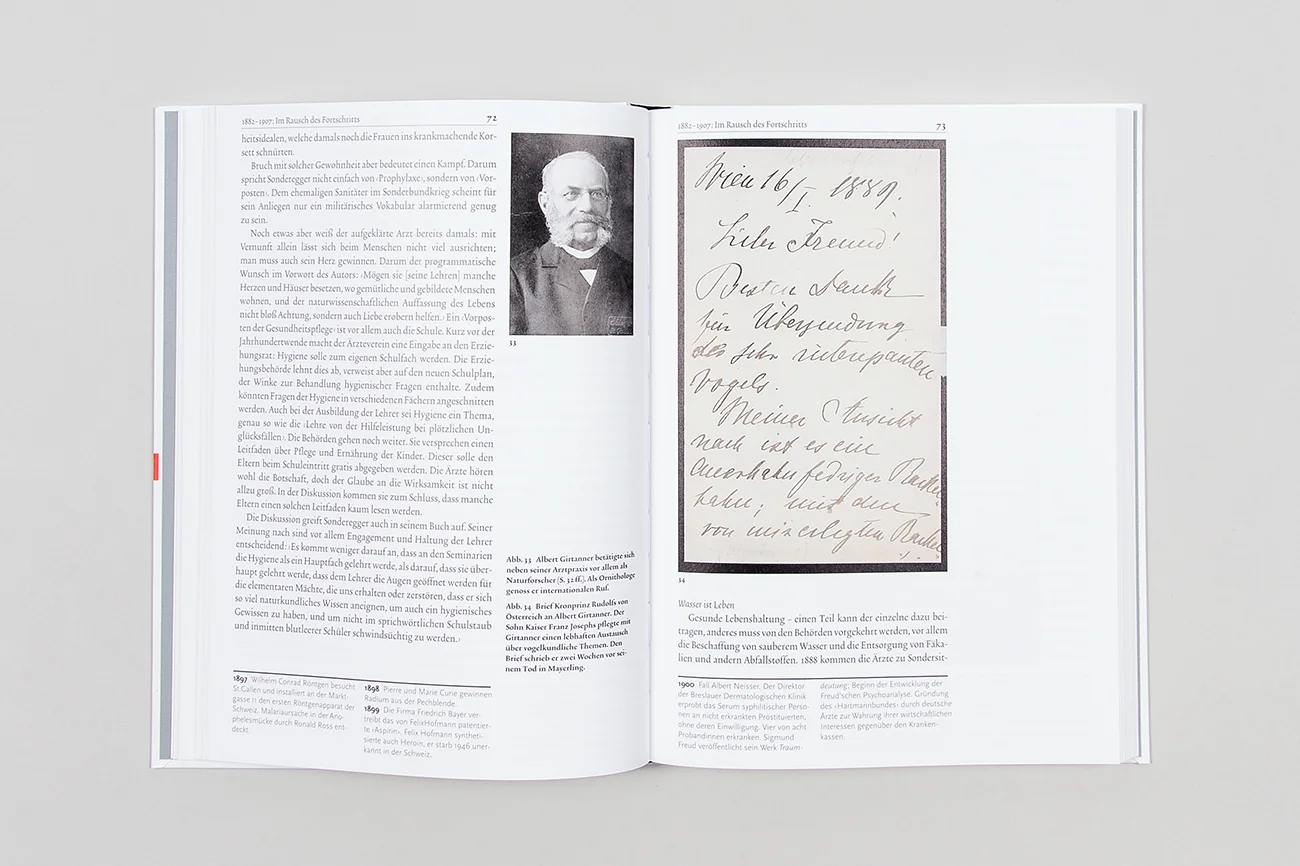 1882–1907: Im Rausch des Fortschritts 72
heitsidealen, welche damals noch die Frauen ins krankmachende Kor-
sett schnürten.
Bruch mit solcher Gewohnheit aber bedeutet einen Kampf. Darum
spricht Sonderegger nicht einfach von ‹Prophylaxe›, sondern von ‹Vor-
posten›. Dem ehemaligen Sanitäter im Sonderbundkrieg scheint für
sein Anliegen nur ein militärisches Vokabular alarmierend genug
zu sein.
Noch etwas aber weiß der aufgeklärte Arzt bereits damals: mit
Vernunft allein lässt sich beim Menschen nicht viel ausrichten;
man muss auch sein Herz gewinnen. Darum der programmatische
Wunsch im Vorwort des Autors: ‹Mögen sie [seine Lehren] manche
Herzen und Häuser besetzen, wo gemütliche und gebildete Menschen
wohnen, und der naturwissenschaftlichen Auffassung des Lebens
nicht bloß Achtung, sondern auch Liebe erobern helfen.› Ein ‹Vorpos-
ten der Gesundheitspflege› ist vor allem auch die Schule. Kurz vor der
Jahrhundertwende macht der Ärzteverein eine Eingabe an den Erzie-
hungsrat: Hygiene solle zum eigenen Schulfach werden. Die Erzie-
hungsbehörde lehnt dies ab, verweist aber auf den neuen Schulplan,
der Winke zur Behandlung hygienischer Fragen enthalte. Zudem
könnten Fragen der Hygiene in verschiedenen Fächern angeschnitten
werden. Auch bei der Ausbildung der Lehrer sei Hygiene ein Thema,
genau so wie die ‹Lehre von der Hilfeleistung bei plötzlichen Un-
glücksfällen›. Die Behörden gehen noch weiter. Sie versprechen einen
Leitfaden über Pflege und Ernährung der Kinder. Dieser solle den
Eltern beim Schuleintritt gratis abgegeben werden. Die Ärzte hören
wohl die Botschaft, doch der Glaube an die Wirksamkeit ist nicht
allzu groß. In der Diskussion kommen sie zum Schluss, dass manche
Eltern einen solchen Leitfaden kaum lesen werden.
Die Diskussion greift Sonderegger auch in seinem Buch auf. Seiner
Meinung nach sind vor allem Engagement und Haltung der Lehrer
entscheidend: ‹Es kommt weniger darauf an, dass an den Seminarien
die Hygiene als ein Hauptfach gelehrt werde, als darauf, dass sie über-
haupt gelehrt werde, dass dem Lehrer die Augen geöffnet werden für
die elementaren Mächte, die uns erhalten oder zerstören, dass er sich
so viel naturkundliches Wissen aneignen, um auch ein hygienisches
Gewissen zu haben, und um nicht im sprichwörtlichen Schulstaub
und inmitten blutleerer Schüler schwindsüchtig zu werden.›
33
Abb. 33 Albert Girtanner betätigte sich
neben seiner Arztpraxis vor allem als
Naturforscher (S. 32 ff.). Als Ornithologe
genoss er internationalen Ruf.
Abb. 34 Brief Kronprinz Rudolfs von
Österreich an Albert Girtanner. Der
Sohn Kaiser Franz Josephs pflegte mit
Girtanner einen lebhaften Austausch
über vogelkundliche Themen. Den
Brief schrieb er zwei Wochen vor sei-
nem Tod in Mayerling.
1897 Wilhelm Conrad Röntgen besucht
St.Gallen und installiert an der Markt-
gasse 11 den ersten Röntgenapparat der
Schweiz. Malariaursache in der Ano-
phelesmücke durch Ronald Ross ent-
deckt.
1898 Pierre und Marie Curie gewinnen
Radium aus der Pechblende.
1899 Die Firma Friedrich Bayer ver-
treibt das von FelixHofmann patentier-
te ‹Aspirin›. Felix Hofmann syntheti-
sierte auch Heroin, er starb 1946 uner-
kannt in der Schweiz.
1882–1907: Im Rausch des Fortschritts 73
Wien 16/I. 1889.
Lieber Freund!
Besten Dank
für Übersendung
des sehr interessanten
Vogels.
Meiner Ansicht
nach ist es ein
auerhahnfedriger Rackel
hahn; mit den
von mir erlegten Rackel
34
Wasser ist Leben
Gesunde Lebenshaltung – einen Teil kann der einzelne dazu bei-
tragen, anderes muss von den Behörden vorgekehrt werden, vor allem
die Beschaffung von sauberem Wasser und die Entsorgung von Fäka-
lien und andern Abfallstoffen. 1888 kommen die Ärzte zu Sondersit-
1900 Fall Albert Neisser. Der Direktor
der Breslauer Dermatologischen Klinik
erprobt das Serum syphilitischer Perso-
nen an nicht erkrankten Prostituierten,
ohne deren Einwilligung. Vier von acht
Probandinnen erkranken. Sigmund
Freud veröffentlicht sein Werk Traum-
deutung; Beginn der Entwicklung der
Freud'schen Psychoanalyse. Gründung
des ‹Hartmannbundes› durch deutsche
Ärzte zur Wahrung ihrer wirtschaftlichen
Interessen gegenüber den Kranken-
kassen.